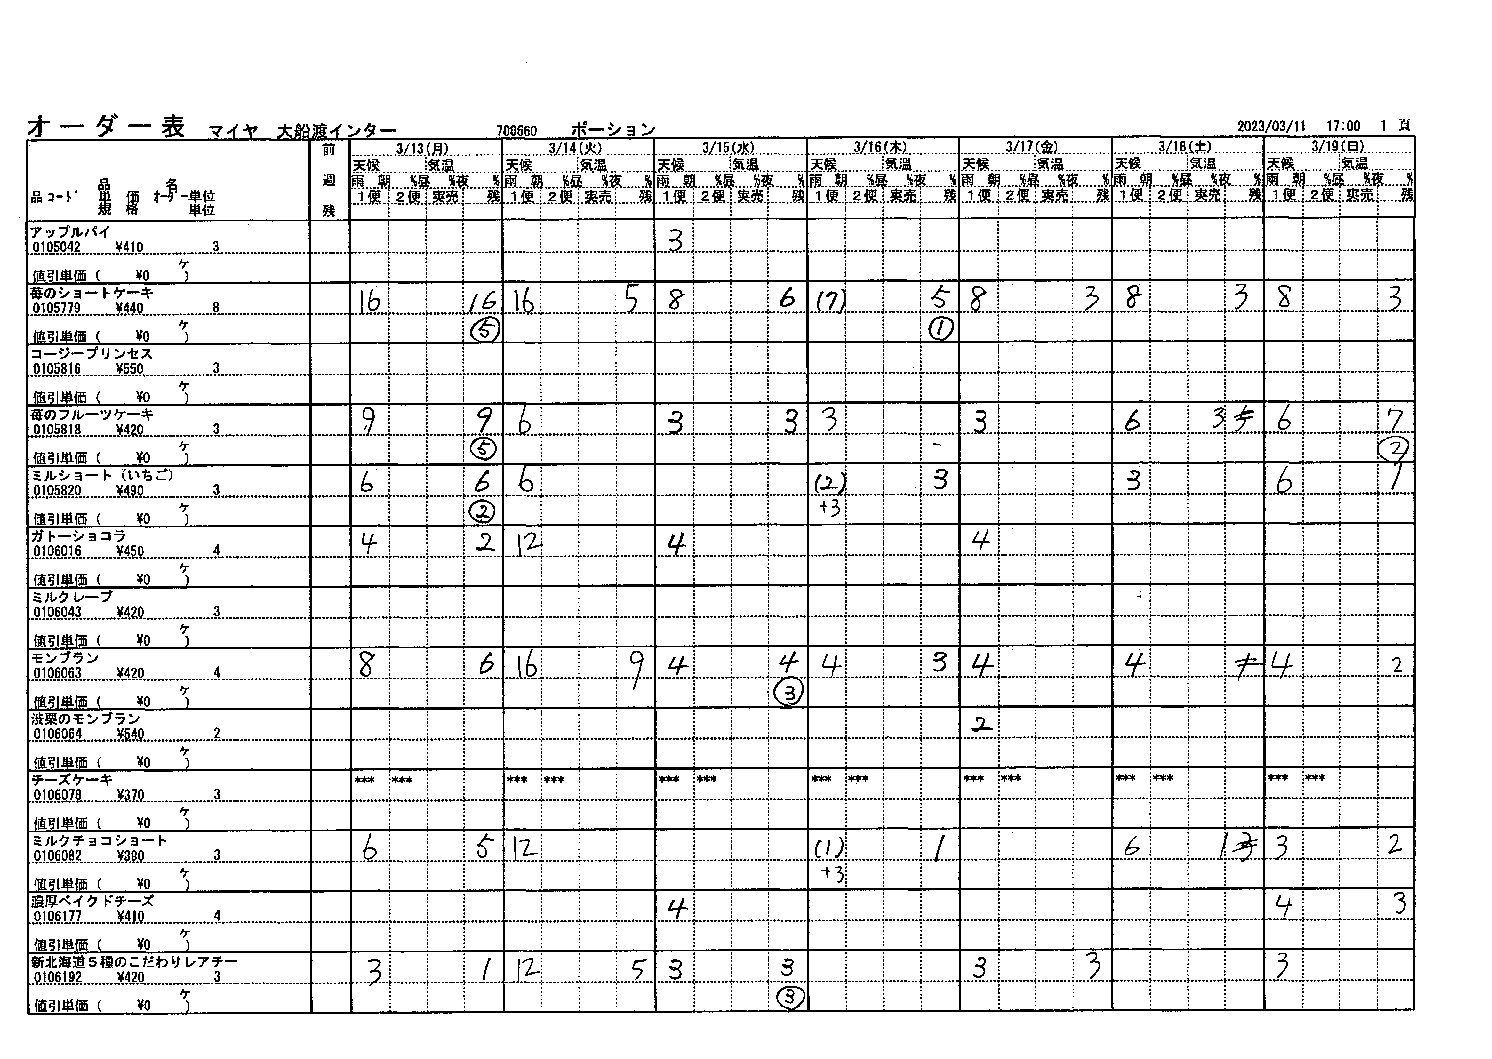 オーダー表 マイヤ 大船渡インター 700660 ポーション 2023/03/11 17:00 1 頁
前 3/13(月) 3/14(火) 3/15(水) 3/16(木) 3/17(金) 3/18(土) 3/19(日)
天候 気温 天候 気温 天候 気温 天候 気温 天候 気温 天候 気温 天候 気温
品 名 週 雨 朝 %昼 %夜 % 雨 朝 %昼 %夜 % 雨 朝 %昼 %夜 % 雨 朝 %昼 %夜 % 雨 朝 %昼 %夜 % 雨 朝 %昼 %夜 % 雨 朝 %昼 %夜 %
品コード 単 価 オーダー単位 1便 2便 実売 残 1便 2便 実売 残 1便 2便 実売 残 1便 2便 実売 残 1便 2便 実売 残 1便 2便 実売 残 1便 2便 実売 残
規 格 単位 残
アップルパイ
0105042 ¥410 3 3
ケ
値引単価 ( ¥0 )
苺のショートケーキ
0105779 ¥440 8 16 16 16 5 8 6 (7) 5 8 3 8 3 8 3
ケ ⑤ ①
値引単価 ( ¥0 )
コージープリンセス
0105816 ¥550 3
ケ
値引単価 ( ¥0 )
苺のフルーツケーキ
0105818 ¥420 3 9 9 6 3 3 3 3 6 3 6 7
ケ ⑤ ②
値引単価 ( ¥0 )
ミルショート (いちご)
0105820 ¥490 3 6 6 6 (2) 3 3 6 1
ケ ② +3
値引単価 ( ¥0 )
ガトーショコラ
0106016 ¥450 4 4 2 12 4 4
ケ
値引単価 ( ¥0 )
ミルクレープ
0106043 ¥420 3
ケ
値引単価 ( ¥0 )
モンブラン
0106063 ¥420 4 8 6 16 9 4 4 4 3 4 4 4 2
ケ ③
値引単価 ( ¥0 )
渋栗のモンブラン
0106064 ¥540 2 2
ケ
値引単価 ( ¥0 )
チーズケーキ *** *** *** *** *** *** *** *** *** *** *** *** *** ***
0106078 ¥370 3
ケ
値引単価 ( ¥0 )
ミルクチョコショート
0106082 ¥380 3 6 5 12 (1) 1 6 1 3 2
ケ +3
値引単価 ( ¥0 )
濃厚ベイクドチーズ
0106177 ¥410 4 4 4 3
ケ
値引単価 ( ¥0 )
新北海道5種のこだわりレアチー
0106192 ¥420 3 3 1 12 5 3 3 3 3 3
ケ ③
値引単価 ( ¥0 )